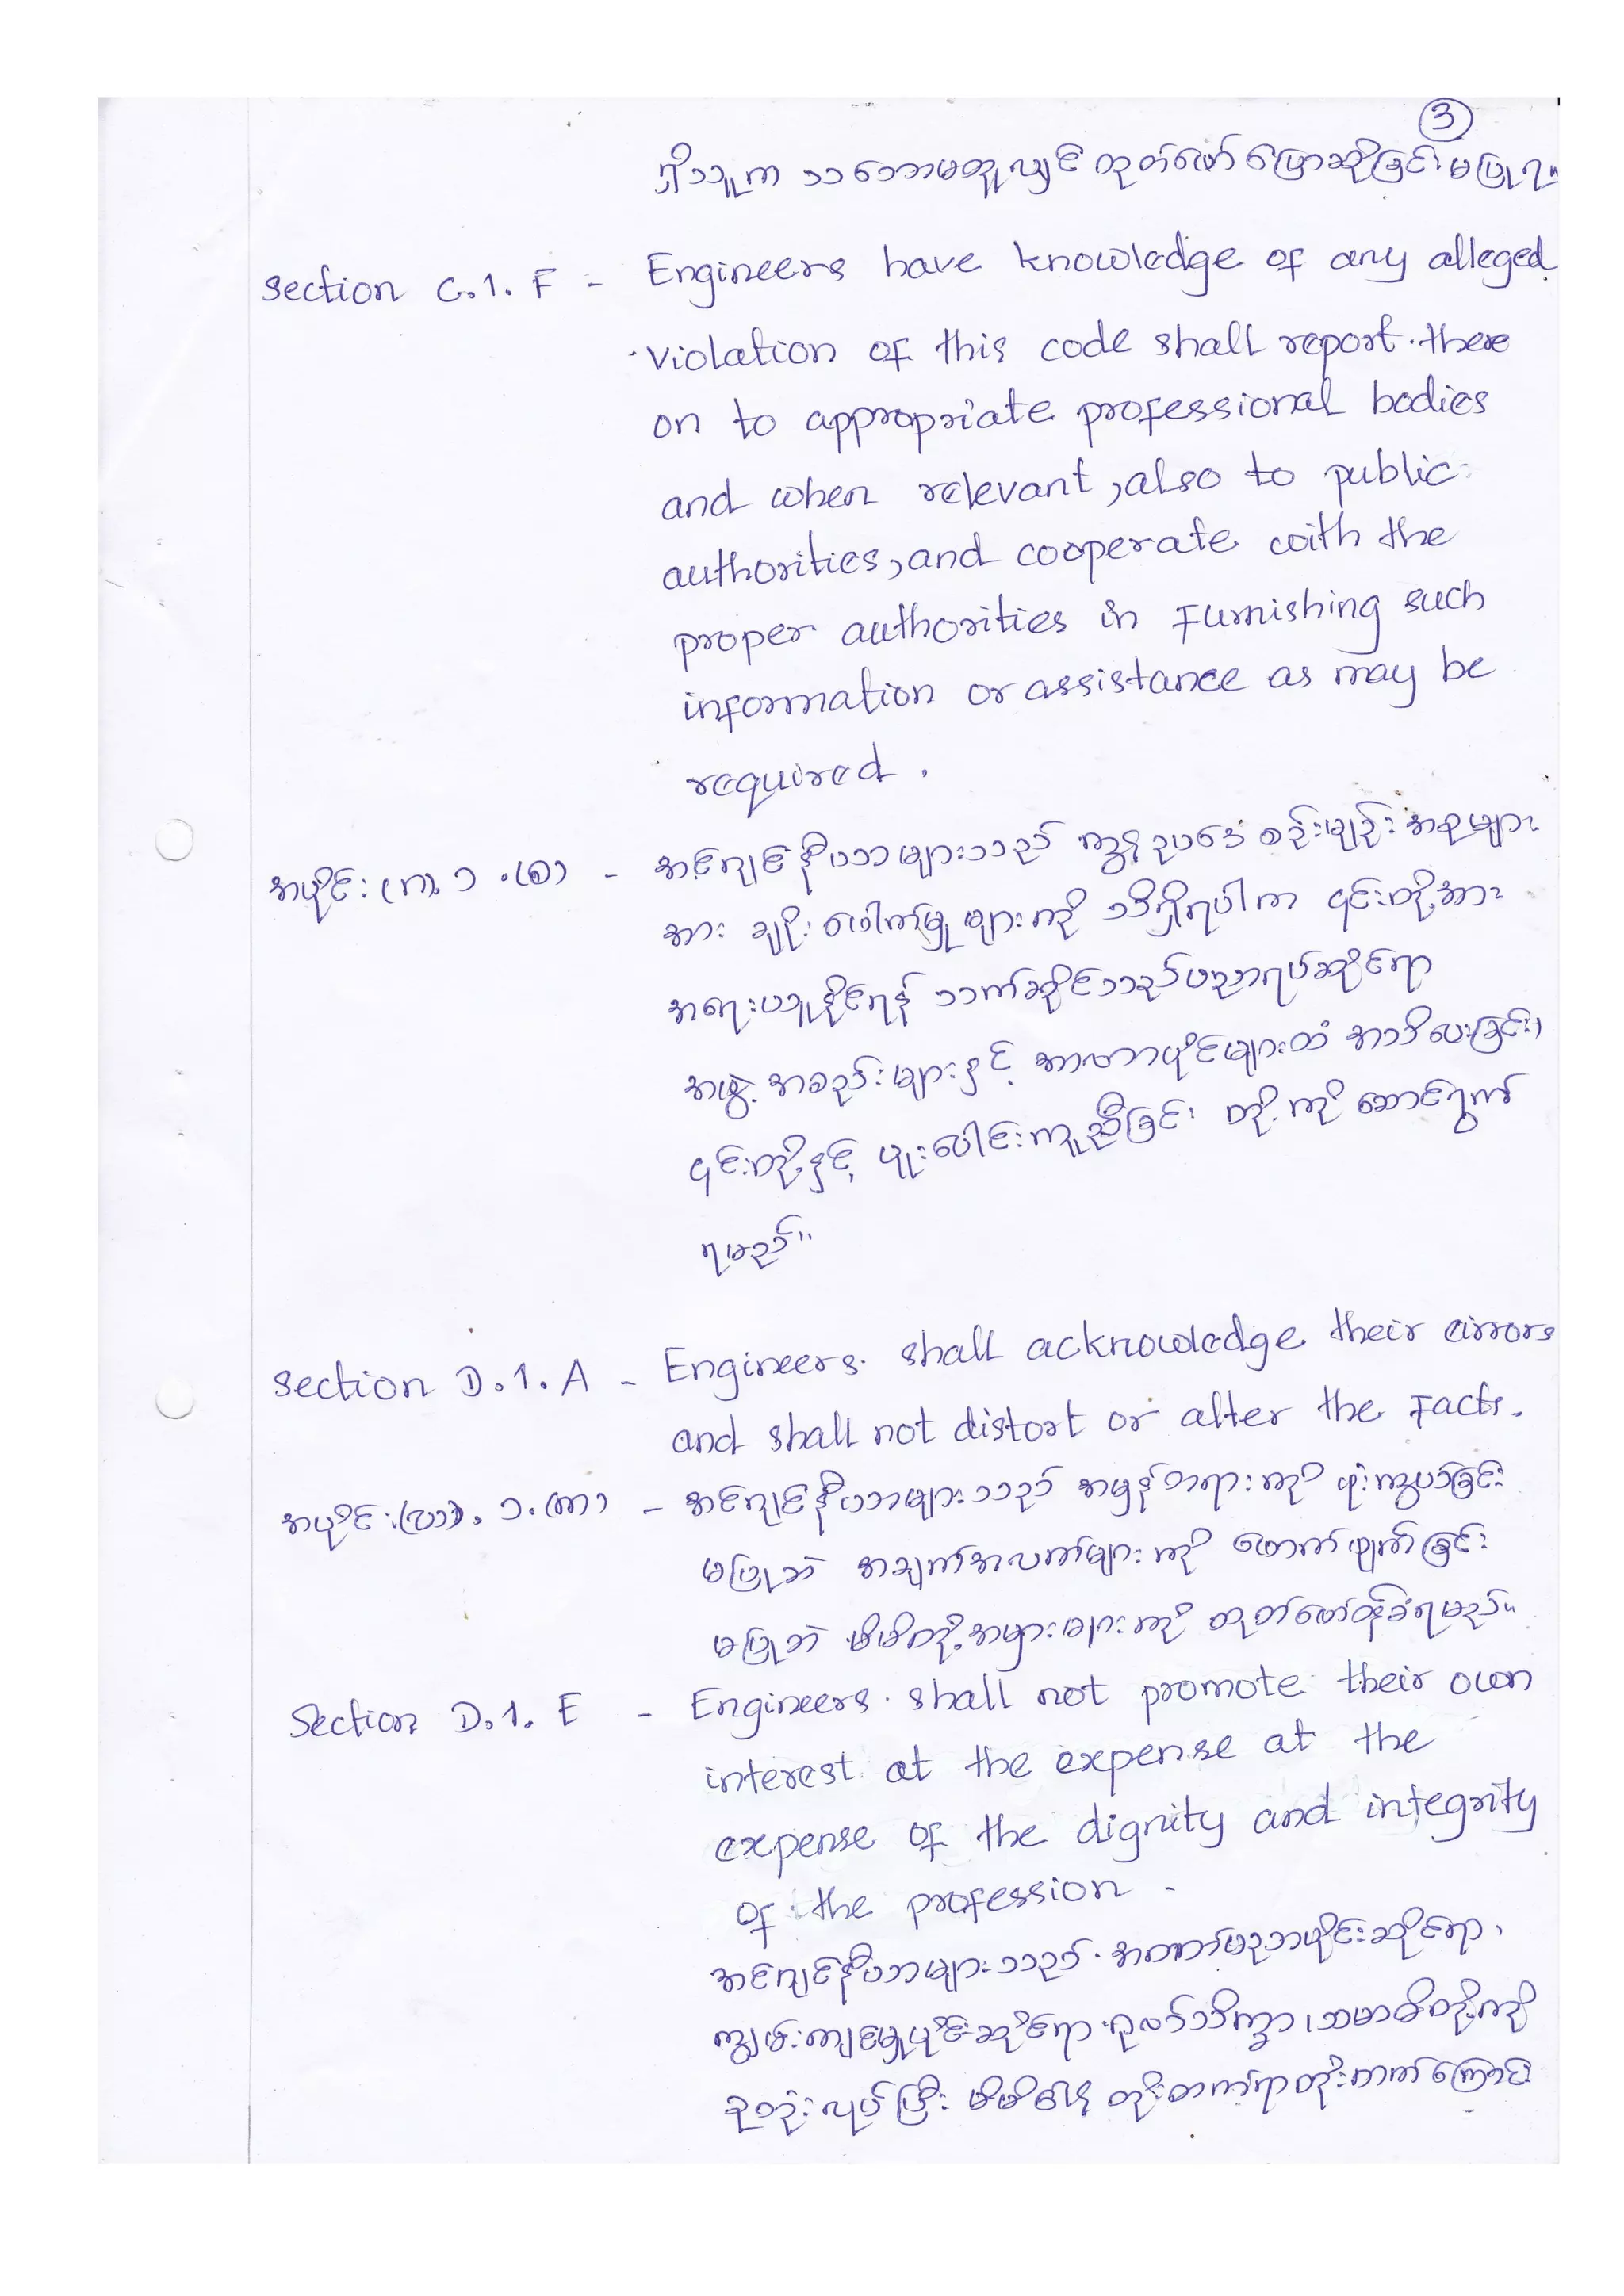 3
ရှိသူက သဘောမတူလျှင် ထုတ်ဖော် ပြောဆိုခြင်း မပြုရ။
Section C.1. F - Engineers have knowledge of any alleged
violation of this code shall report there
on to appropriate professional bodies
and when relevant, also to public
authorities, and cooperate with the
proper authorities in Furnishing such
information or assistance as may be
required.
အပိုင်း (ဂ). ၁ .(စ) - အင်ဂျင်နီယာများသည် ဤ၌ ဥပဒေ စည်းမျဉ်း အရများ
အား ချိုးဖေါက်မှု များကို သိရှိရပါက ၎င်းတို့အား
အရေးယူနိုင်ရန် သက်ဆိုင်သည်ပညာရပ်ဆိုင်ရာ
အဖွဲ့ အစည်းများနှင့် အာဏာပိုင်များထံ အသိပေးခြင်း၊
၎င်းတို့နှင့် ပူးပေါင်းကူညီခြင်း တို့ ကို ဆောင်ရွက်
ရမည်။
Section D.1. A - Engineers shall acknowledge their errors
and shall not distort or alter the Facts.
အပိုင်း(ဃ). ၁.(က) - အင်ဂျင်နီယာများသည် အမှန်တရား ကို ဖုံးကွယ်ခြင်း
မပြုဘဲ အချက်အလက်များ ကို ဖောက်ဖျက်ခြင်း
မပြုဘဲ မိမိတို့အမှားများ ကို ထုတ်ဖော်ဝန်ခံရမည်။
Section D.1. E - Engineers shall not promote their own
interest at the expense at the
expense of the dignity and integrity
of the profession.
အင်ဂျင်နီယာများသည် အတတ်ပညာပိုင်းဆိုင်ရာ၊
ကျွမ်းကျင်မှုပိုင်းဆိုင်ရာ ဂုဏ်သိက္ခာ၊ သမာဓိတို့ကို
လုပ်ပြီး မိမိ၏ တိုးတက်ရာတိုးတက်ကြောင်း